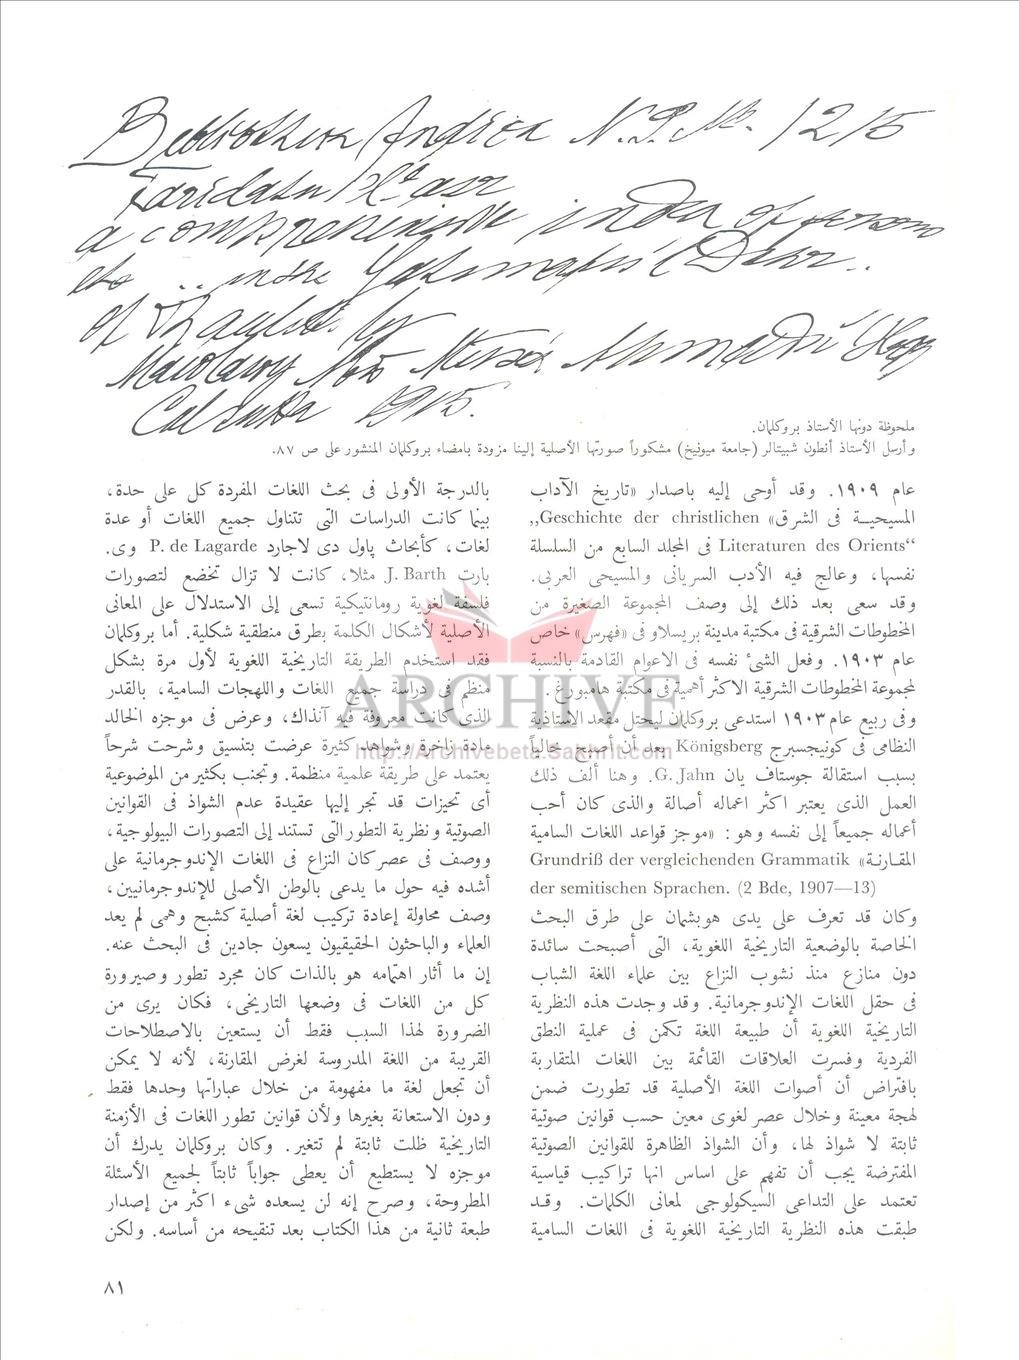 Bibliotheca Indica N. S. No. 1215
Faridatu'l asr
a comprehensive index of persons
etc .. in the Yatimatu'l Dahr..
of Tha'alibi by
Mawlawy Abu Musa Ahmadu'l Haqq
Calcutta 1915.
ملحوظة دونها الأستاذ بروكلمان.
وأرسل الأستاذ أنطون شبيتالر (جامعة ميونيخ) مشكوراً صورتها الأصلية إلينا مزودة بامضاء بروكلمان المنشور على ص ٨٧.
عام ١٩٠٩. وقد أوحى إليه باصدار «تاريخ الآداب
المسيحيـة فى الشرق» Geschichte der christlichen,,
Literaturen des Orients“ فى المجلد السابع من السلسلة
نفسها، وعالج فيه الأدب السريانى والمسيحى العربى.
وقد سعى بعد ذلك إلى وصف المجموعة الصغيرة من
المخطوطات الشرقية فى مكتبة مدينة بريسلاو فى «فهرس» خاص
عام ١٩٠٣. وفعل الشىء نفسه فى الاعوام القادمة بالنسبة
لمجموعة المخطوطات الشرقية الاكثر أهمية فى مكتبة هامبورغ.
وفى ربيع عام ١٩٠٣ استدعى بروكلمان ليحتل مقعد الاستاذية
النظامى فى كونيجسبرج Königsberg بعد أن أصبح خالياً
بسبب استقالة جوستاف يان G. Jahn. وهنا ألف ذلك
العمل الذى يعتبر اكثر اعماله أصالة والذى كان أحب
أعماله جميعاً إلى نفسه وهو : «موجز قواعد اللغات السامية
المقـارنـة» Grundriß der vergleichenden Grammatik
der semitischen Sprachen. (2 Bde, 1907—13)
وكان قد تعرف على يدى هوبشمان على طرق البحث
الخاصة بالوضعية التاريخية اللغوية، التى أصبحت سائدة
دون منازع منذ نشوب النزاع بين علماء اللغة الشباب
فى حقل اللغات الإندوجرمانية. وقد وجدت هذه النظرية
التاريخية اللغوية أن طبيعة اللغة تكمن فى عملية النطق
الفردية وفسرت العلاقات القائمة بين اللغات المتقاربة
بافتراض أن أصوات اللغة الأصلية قد تطورت ضمن
لهجة معينة وخلال عصر لغوى معين حسب قوانين صوتية
ثابتة لا شواذ لها، وأن الشواذ الظاهرة للقوانين الصوتية
المفترضة يجب أن تفهم على اساس انها تراكيب قياسية
تعتمد على التداعى السيكولوجى لمعانى الكلمات. وقـد
طبقت هذه النظرية التاريخية اللغوية فى اللغات السامية
بالدرجة الأولى فى بحث اللغات المفردة كل على حدة،
بينما كانت الدراسات التى تتناول جميع اللغات أو عدة
لغات، كأبحاث پاول دى لاجارد P. de Lagarde وى.
بارت J. Barth مثلا، كانت لا تزال تخضع لتصورات
فلسفة لغوية رومانتيكية تسعى إلى الاستدلال على المعانى
الأصلية لأشكال الكلمة بطرق منطقية شكلية. أما بروكلمان
فقد استخدم الطريقة التاريخية اللغوية لأول مرة بشكل
منظم فى دراسة جميع اللغات واللهجات السامية، بالقدر
الذى كانت معروفة فيه آنذاك، وعرض فى موجزه الخالد
مادة زاخرة وشواهد كثيرة عرضت بتنسيق وشرحت شرحاً
يعتمد على طريقة علمية منظمة. وتجنب بكثير من الموضوعية
أى تحيزات قد تجر إليها عقيدة عدم الشواذ فى القوانين
الصوتية ونظرية التطور التى تستند إلى التصورات البيولوجية،
ووصف فى عصر كان النزاع فى اللغات الإندوجرمانية على
أشده فيه حول ما يدعى بالوطن الأصلى للإندوجرمانيين،
وصف محاولة إعادة تركيب لغة أصلية كشبح وهمى لم يعد
العلماء والباحثون الحقيقيون يسعون جادين فى البحث عنه.
إن ما أثار اهتمامه هو بالذات كان مجرد تطور وصيرورة
كل من اللغات فى وضعها التاريخى، فكان يرى من
الضرورة لهذا السبب فقط أن يستعين بالاصطلاحات
القريبة من اللغة المدروسة لغرض المقارنة، لأنه لا يمكن
أن تجعل لغة ما مفهومة من خلال عباراتها وحدها فقط
ودون الاستعانة بغيرها ولأن قوانين تطور اللغات فى الأزمنة
التاريخية ظلت ثابتة لم تتغير. وكان بروكلمان يدرك أن
موجزه لا يستطيع أن يعطى جواباً ثابتاً لجميع الأسئلة
المطروحة، وصرح إنه لن يسعده شىء اكثر من إصدار
طبعة ثانية من هذا الكتاب بعد تنقيحه من أساسه. ولكن
ARCHIVE
http://Archivebeta.Sakhrit.com
٨١